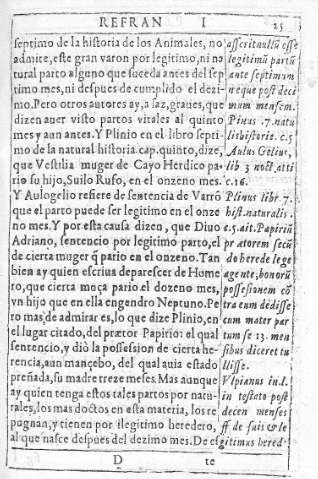 REFRAN I
25
septimo de la historia de los Animales, no
admite, este gran varon por legitimo, ni na
tural parto alguno que suceda antes del sep
timo mes, ni despues de cumplido el dezi-
mo. Pero otros autores ay, a laz, graues, que
dizen auer visto partos vitales al quinto
mes y aun antes. Y Plinio en el libro septi-
mo de la natural historia. cap. quinto, dize,
que Vestilia muger de Cayo Herdico pa-
rio su hijo, Suilo Rufo, en el onzeno mes.
Y Aulogelio refiere de sentencia de Varrõ
que el parto puede ser legitimo en el onze
no mes. Y por esta causa dizen, que Diuo
Adriano, sentencio por legitimo parto, el
de cierta muger q̃ pario en el onzeno. Tan
bien ay quien escriua deparescer de Home
ro, que cierta moça pario el dozeno mes,
vn hijo que en ella engendro Neptuno. Pe
ro mas de admirar es, lo que dize Plinio, en
el lugar citado, del prætor Papirio: el qual
sentencio, y diò la possession de cierta he-
rencia, aun mançebo, del qual auia estado
preñada, su madre treze meses. Mas aunque
ay quien tenga estos tales partos por natu-
rales, los mas doctos en esta materia, los re
pugnan, y tienen por ilegitimo heredero,
al que nasce despues del dezimo mes. De
D
te
asserit nullũ esse
legitimũ partũ
ante septimum
neque post deci
mum mensem.
Plinus .7. natu
lib historie. c. 5
Aulus Gilius,
lib 3 noct. atti
c. 16.
Plinus libr 7.
hist. naturalis.
c. 5. ait. Papiriũ
prætorem secũ
do herede lege
agente, bonorũ
possesionem cõ
tra eum dedisse
cum mater par
tum se 13. men
sibus diceret tu
lisse.
Vlpianus in. l.
in testato post
decem menses
ff de suis & le
gitimus hered.